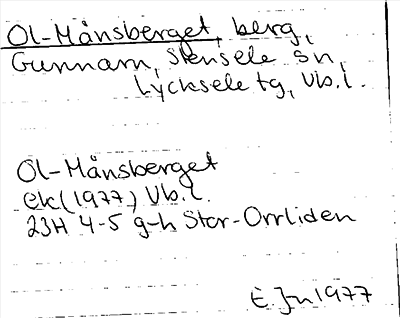 Ol-Månsberget, berg,
Gunnarn, Stensele sn,
Lycksele tg, Vb. l.
Ol-Månsberget
ek (1977) Vb. l.
23H 4-5 g-h Stor-Orrliden
E. Jn 1977